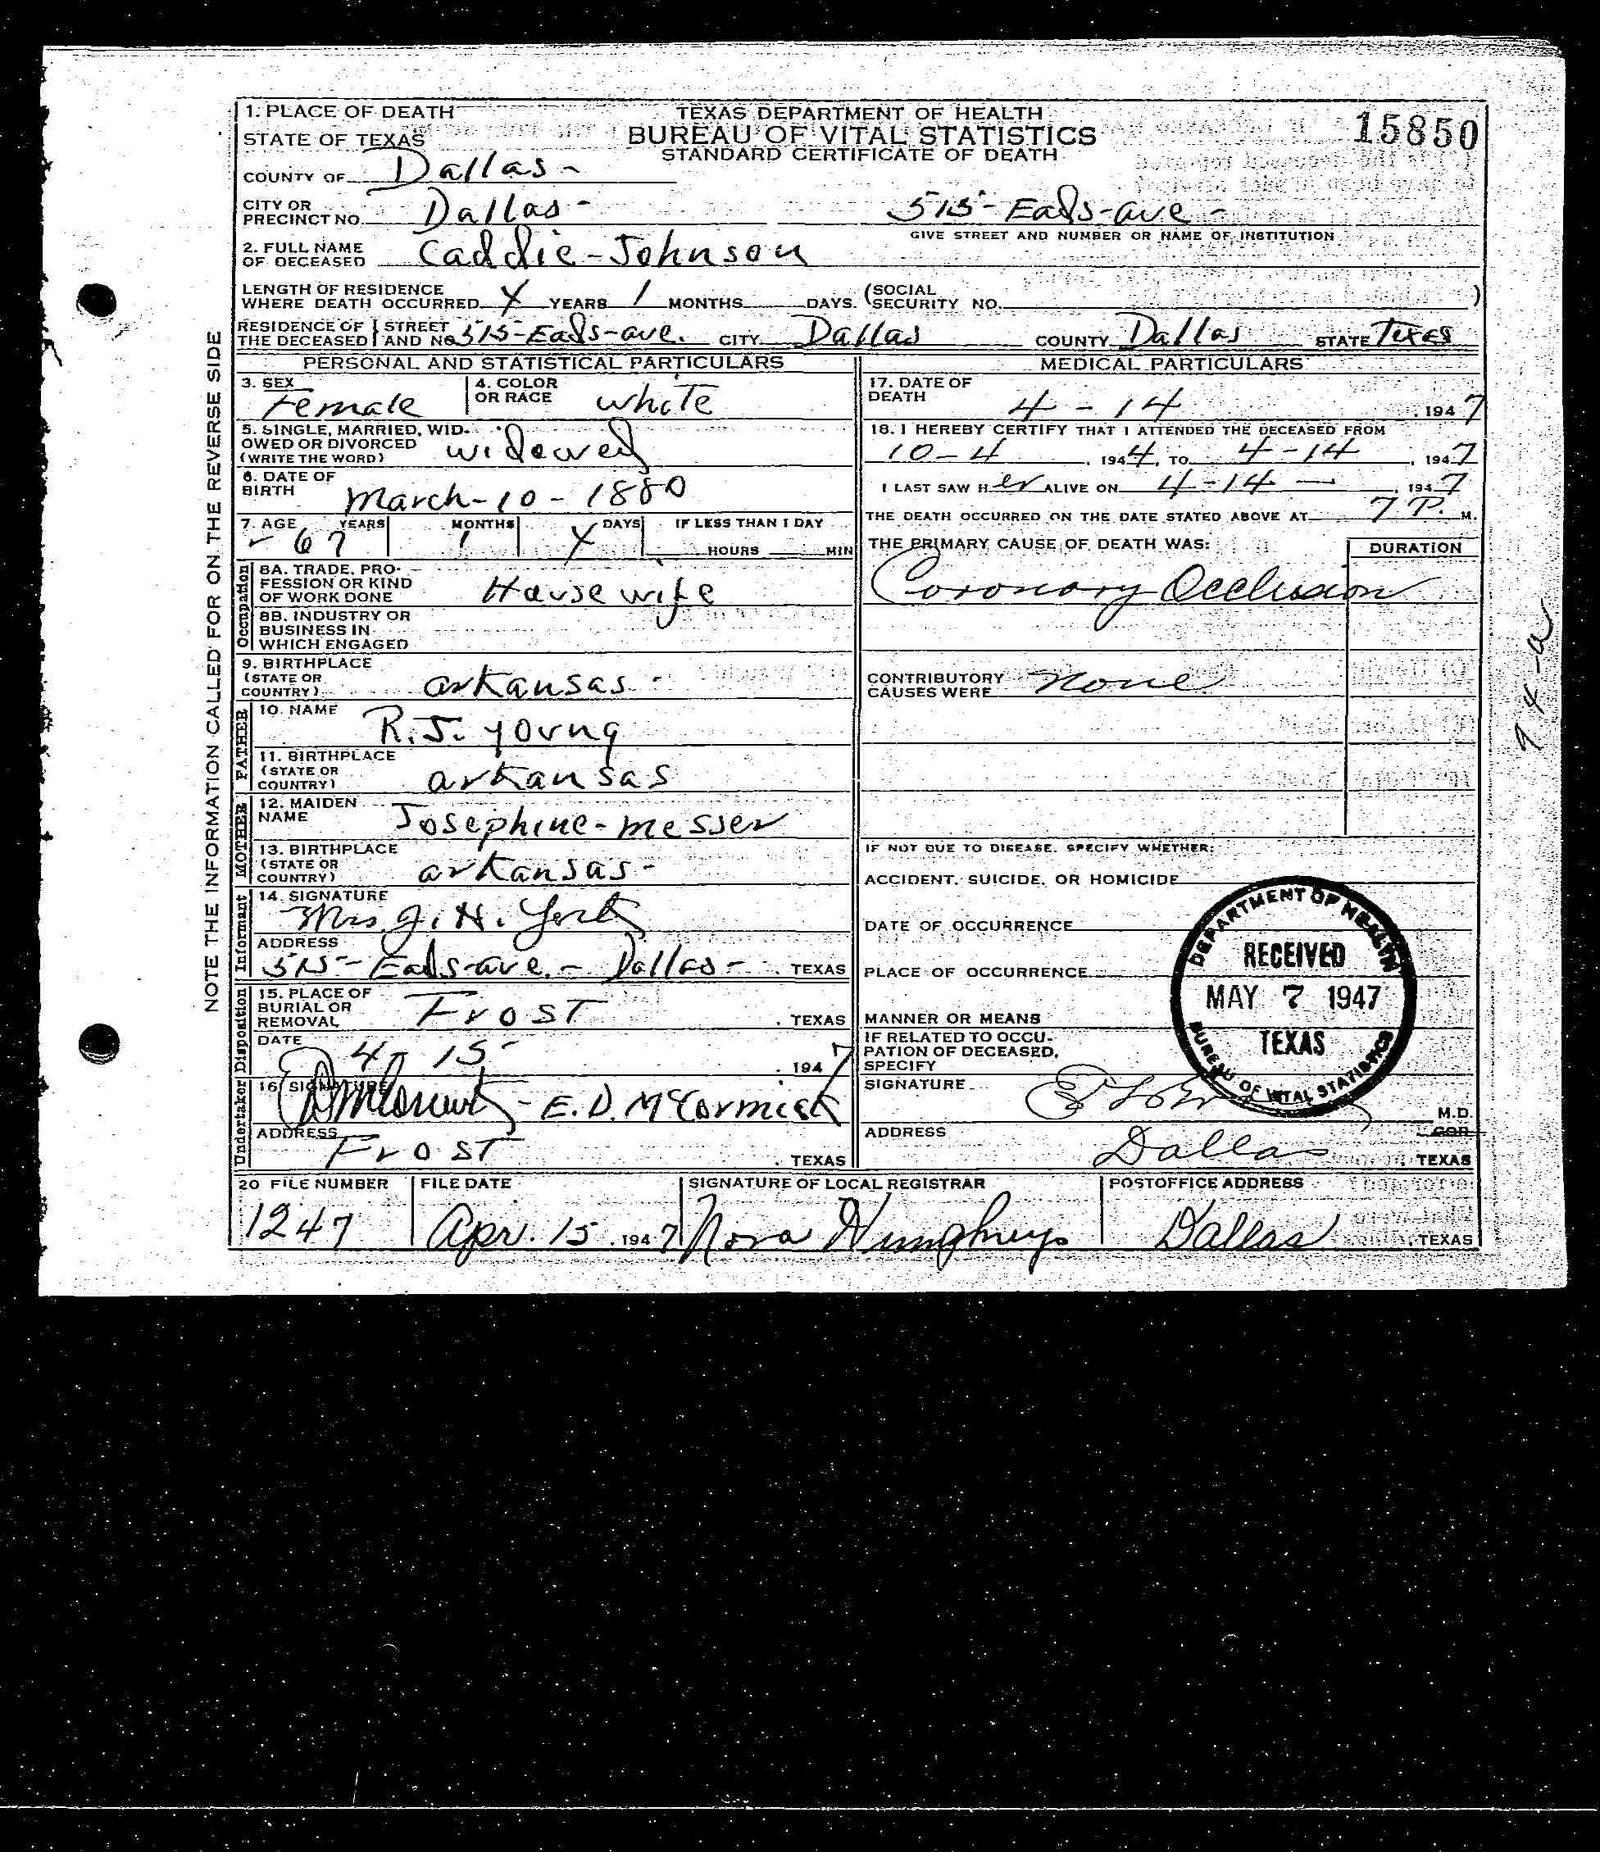 1. PLACE OF DEATH
STATE OF TEXAS
TEXAS DEPARTMENT OF HEALTH
BUREAU OF VITAL STATISTICS
STANDARD CERTIFICATE OF DEATH
15850
COUNTY OF Dallas -
CITY OR PRECINCT NO. Dallas - 515 - Eads - ave -
GIVE STREET AND NUMBER OR NAME OF INSTITUTION
2. FULL NAME OF DECEASED Caddie - Johnson
LENGTH OF RESIDENCE WHERE DEATH OCCURRED 4 YEARS 1 MONTHS DAYS. (SOCIAL SECURITY NO. )
RESIDENCE OF THE DECEASED STREET AND NO. 515 - Eads - ave. CITY Dallas COUNTY Dallas STATE Texas
NOTE THE INFORMATION CALLED FOR ON THE REVERSE SIDE
PERSONAL AND STATISTICAL PARTICULARS
3. SEX Female 4. COLOR OR RACE white
5. SINGLE, MARRIED, WIDOWED OR DIVORCED (WRITE THE WORD) widowed
6. DATE OF BIRTH March - 10 - 1880
7. AGE YEARS MONTHS DAYS IF LESS THAN 1 DAY
67 1 4 HOURS MIN
Occupation
8A. TRADE, PROFESSION OR KIND OF WORK DONE House wife
8B. INDUSTRY OR BUSINESS IN WHICH ENGAGED
9. BIRTHPLACE (STATE OR COUNTRY) arkansas -
FATHER
10. NAME R. J. Young
11. BIRTHPLACE (STATE OR COUNTRY) arkansas
MOTHER
12. MAIDEN NAME Josephine - messer
13. BIRTHPLACE (STATE OR COUNTRY) arkansas -
Informant
14. SIGNATURE Mrs J. H. York
ADDRESS 515 - Eads - ave. - Dallas - TEXAS
Disposition
15. PLACE OF BURIAL OR REMOVAL Frost TEXAS
DATE 4 - 15 - 1947
Undertaker
16. SIGNATURE - E. D. McCormick
ADDRESS Frost TEXAS
MEDICAL PARTICULARS
17. DATE OF DEATH 4 - 14 1947
18. I HEREBY CERTIFY THAT I ATTENDED THE DECEASED FROM
10 - 4, 1944, TO 4 - 14, 1947
I LAST SAW HER ALIVE ON 4 - 14 - 1947
THE DEATH OCCURRED ON THE DATE STATED ABOVE AT 7 P. M.
THE PRIMARY CAUSE OF DEATH WAS: DURATION
Coronary Occlusion
94-a
CONTRIBUTORY CAUSES WERE none
IF NOT DUE TO DISEASE, SPECIFY WHETHER:
ACCIDENT, SUICIDE, OR HOMICIDE
DATE OF OCCURRENCE
PLACE OF OCCURRENCE
MANNER OR MEANS
IF RELATED TO OCCUPATION OF DECEASED, SPECIFY
DEPARTMENT OF HEALTH
RECEIVED
MAY 7 1947
TEXAS
BUREAU OF VITAL STATISTICS
SIGNATURE M.D.
COR
ADDRESS Dallas TEXAS
20 FILE NUMBER FILE DATE SIGNATURE OF LOCAL REGISTRAR POSTOFFICE ADDRESS
1247 Apr. 15, 1947 Nora Humphreys Dallas, TEXAS